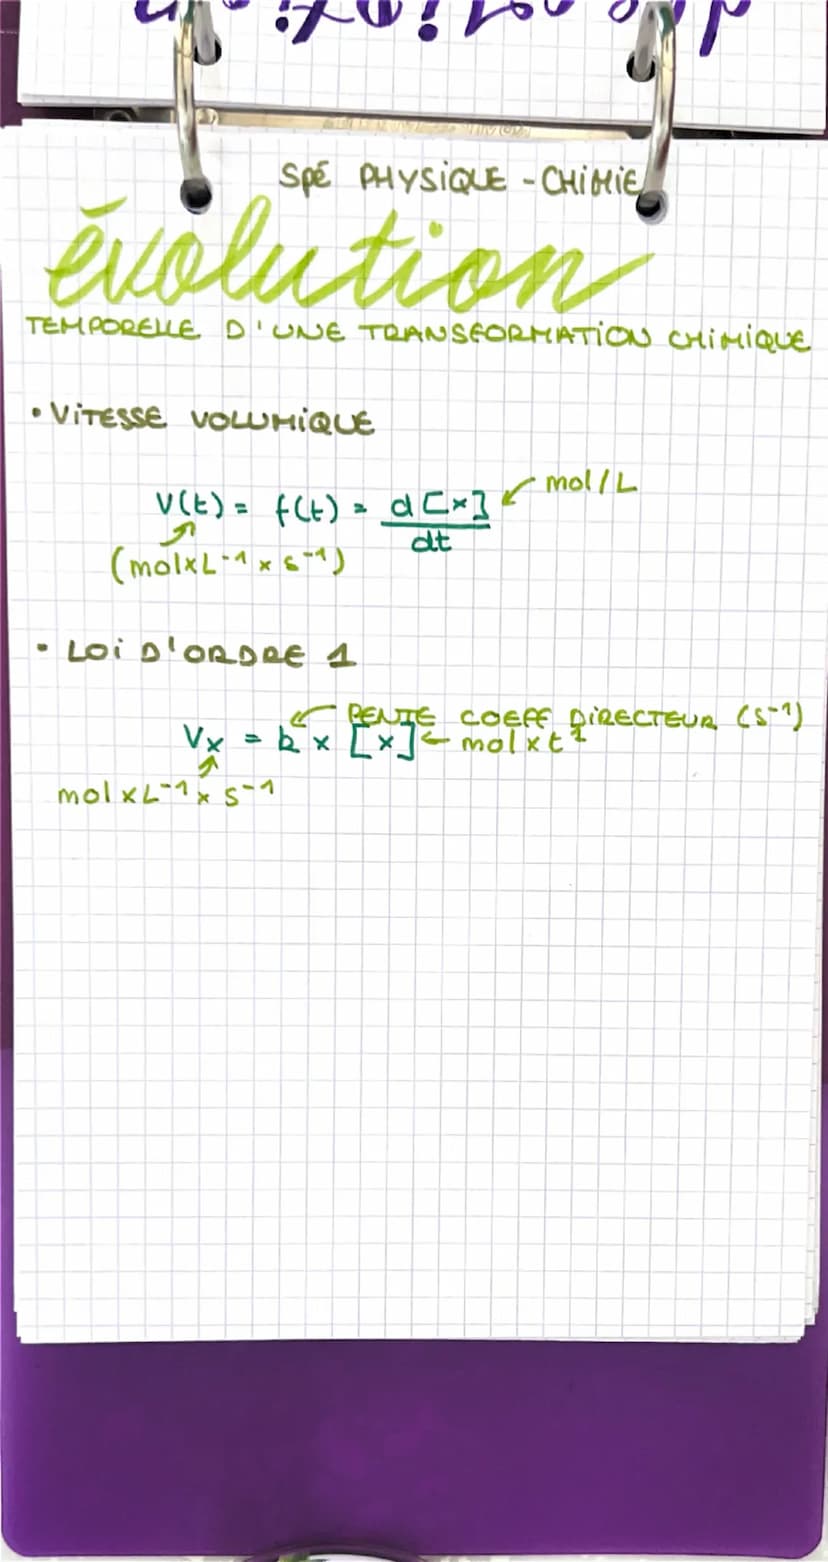 SPÉ PHYSIQUE - CHIMIE
évolution
TEMPORELLE D'UNE TRANSFORMATION CHIMIQUE
• VITESSE VOLUMIQUE
V(t) = f(t) = d[x]/dt ← mol/L
(mol×L⁻¹ × s⁻¹)
• LOI D'ORDRE 1
PENTE COEFF DIRECTEUR (s⁻¹)
Vx = k × [x] ← mol×t⁻¹
mol×L⁻¹× s⁻¹